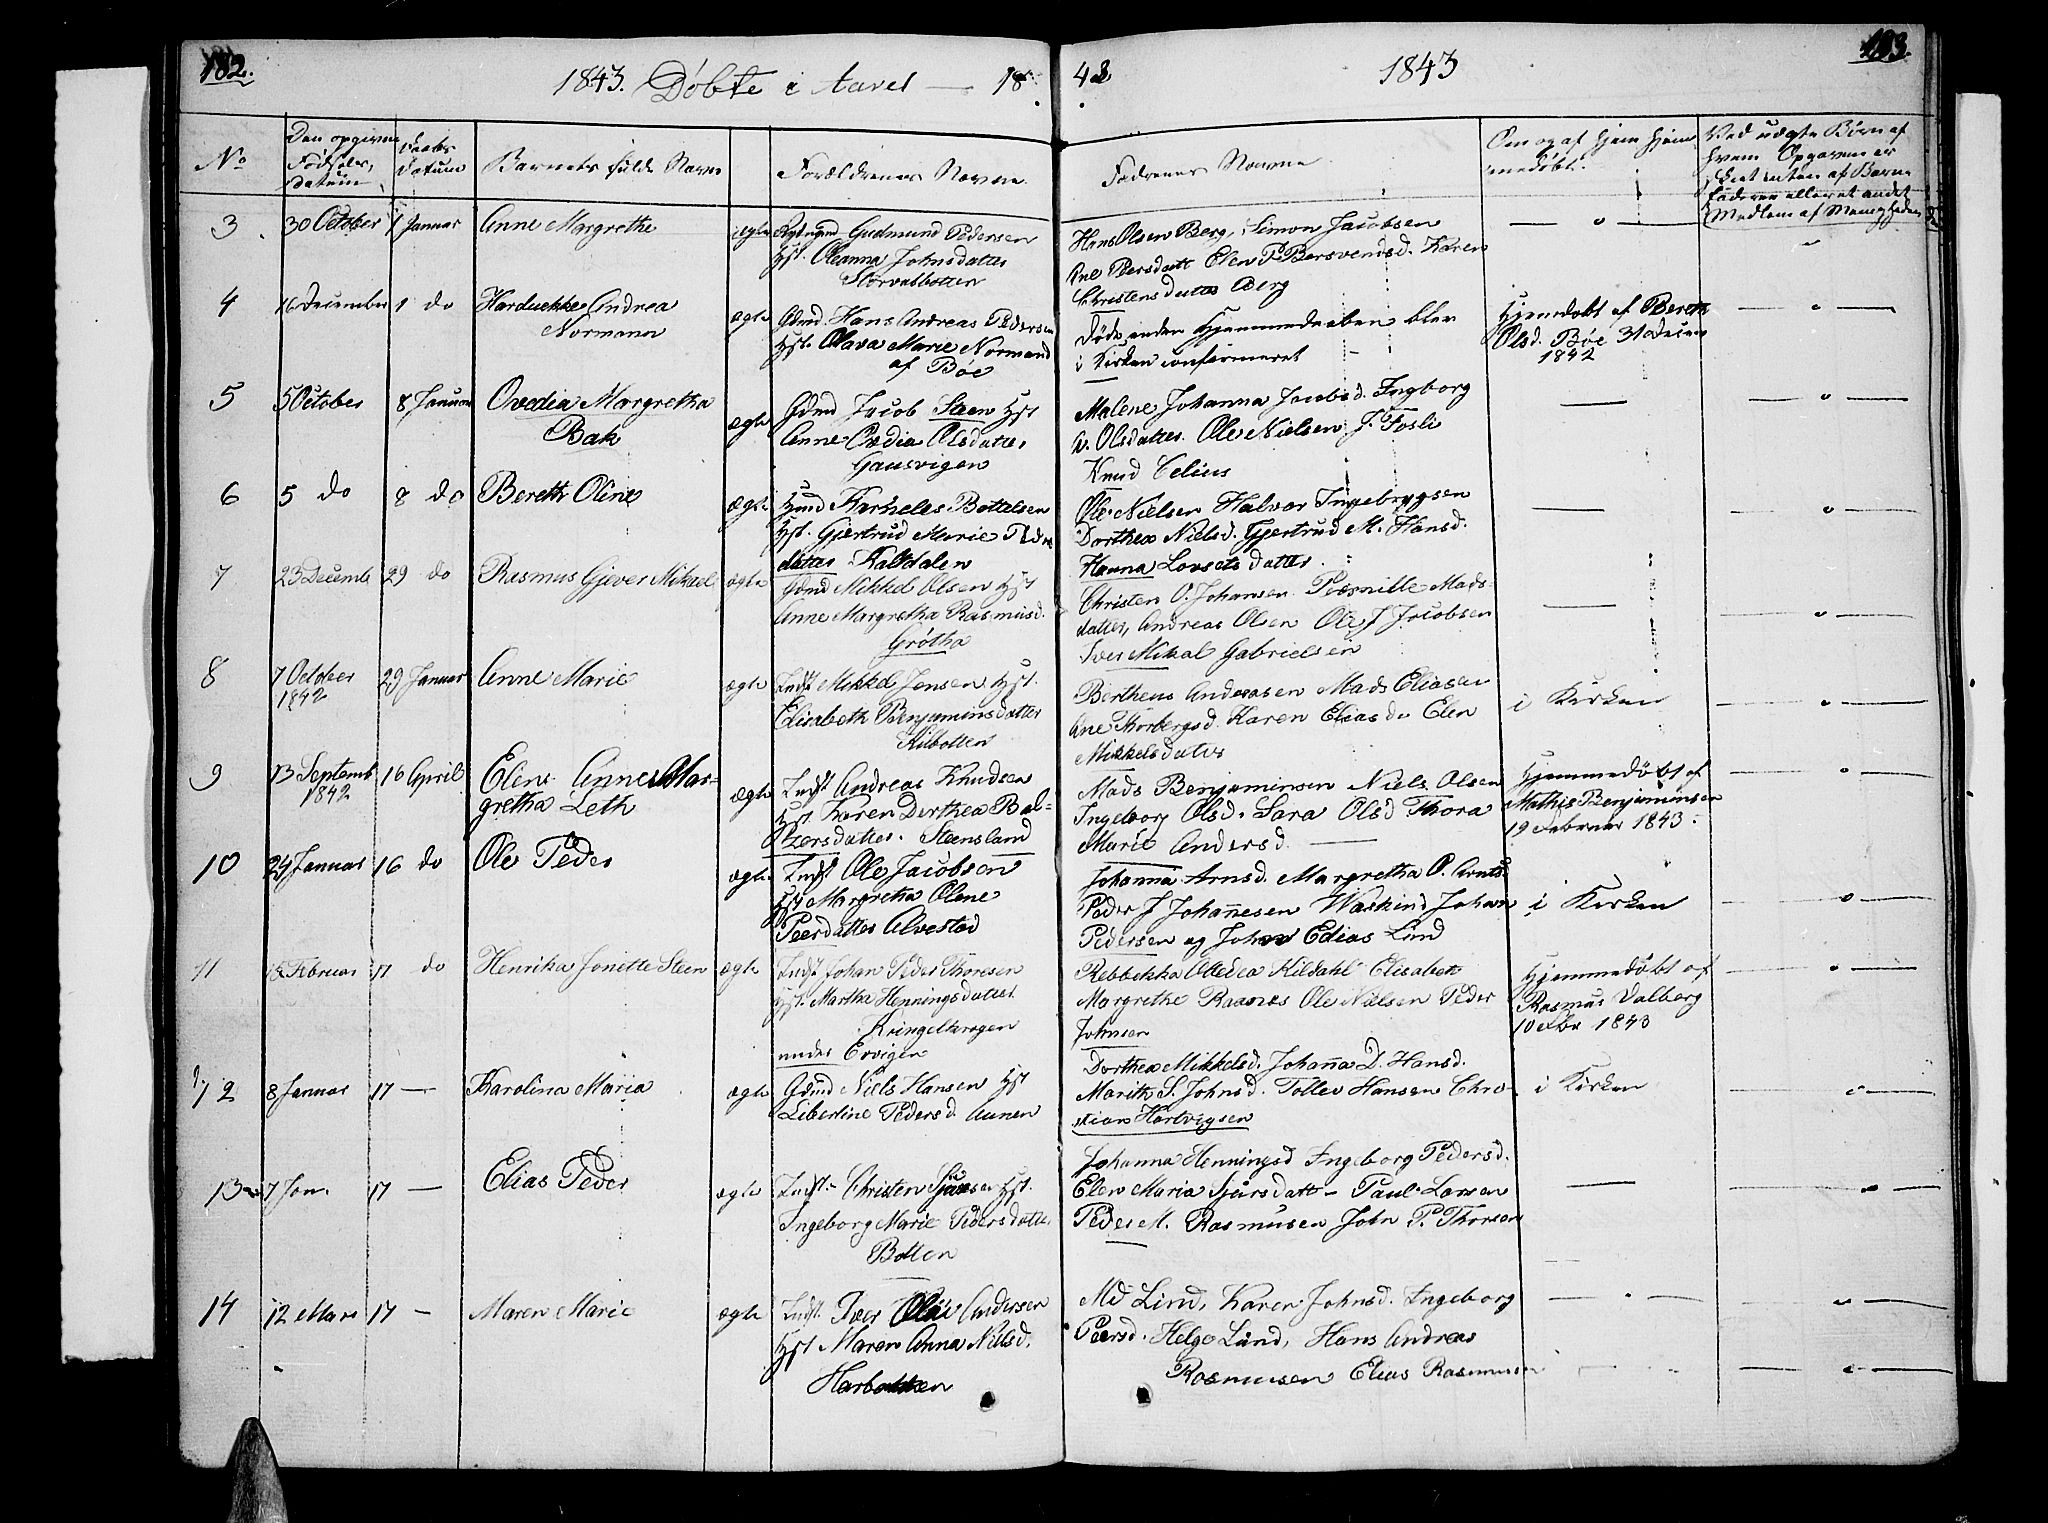 182.
1843. Döbte i Aaret — 18
43
1843
193.
No
Den opgivne Fødsels, datum
Daabs Datum
Barnets fulde Navn
Forældrenes Navne
Fadrenes Navne
Om og af hjem hjem medøbt.
Ved uægte Børn af hvem Opgaven er skeet enten af Barne faderen eller et andet Medlem af Menigheden
3. 30 October 1 Januar Anne Margrethe ægte Gudmund Pedersen
Hst. Oleanna Johnsdatter
Storvatbotten
Hans Olsen Berg, Simon Jacobsen
Ane Peersdatt Elen P Barsvendsd. Karen
Christensdatter Berg
4 16 December 1 do Harduekke Andrea
Normann
ægte Gdmd. Hans Andreas Pedersen
Hst. Olava Marie Normand
af Böe
Födt anden Hjemmedaaben blev
i Kirken confirmeret
Hjemdobt af Bereth
Olsd. Böe 31 Decem
1842
5 5 October 8 Januar Ovedia Margretha
Bak
ægte Gdmd Jacob Steen Hst
Anne Ovedia Olsdatter
Gausvigen
Malene Johanna Jacobsd. Ingborg
A. Olsdatter. Ole Nielsen J. Fosli
Knud Celius
6 5 do 8 do Bereth Oline ægte Hmd Karheles Bottelsen
Hst. Gjertrud Marie Peder
datter Kaltdalen
Ole Nielsen Halvor Ingebrygsen
Dorthea Nielsd. Gjertrud M. Hansd.
Hanna Lorsets datter
7 23 Decemb 29 do Rasmus Gjever Mikael ægte Gdmd Mikkel Olsen Hst
Anne Margretha Rasmusd.
Grötha
Christen O. Johansen Pernille Mads-
datter, Andreas Olsen Ole J Jacobsen
Iver Mikal Gabrielsen
8 7 October
1842
29 Januar Anne Marie ægte Indst Mikkel Jensen Hst.
Elisabeth Benjaminsdatter
Kilbotten
Bertheus Andreasen Mads Eliasen
Ane Thorbergsd. Karen Eliasd. Elen
Mikkelsdatter
i Kirken
9 13 Septemb
1842
16 April Elene Anne Mar-
gretha Leth
ægte Indst Andreas Knudsen
Hst Karen Dorthea Bal-
tzersdatter. Steensland
Mads Benjaminsen Niels Olsen
Ingeborg Olsd. Sara Olsd Thora
Marie Andersd.
Hjemmedöbt af
Mathis Benjaminsen
19 Februar 1843.
10 24 Januar 16 do Ole Peder ægte Indst Ole Jacobsen
Hst Margretha Olene
Peersdatter Alvestad
Johanna Arnsd. Margretha O. Arnts.
Peder J Johannesen Waskind Johan
Pedersen og John Edias Lind
i Kirken
11 Februar 17 do Henrika Jonette Steen ægte Indst Johan Peder Thoresen
Hst. Martha Henningsdatter
Kringelkrogen
under Ervigen
Rebbekka Olledea Kildahl Elisabeth
Margrethe Raanes Ole Nielsen Peder
Johnsen
Hjemmedöbt af
Rasmus Valberg
10 1843
12 8 Januar 17 — Karolina Maria ægte Gdmd Niels Hansen Hst
Libertine Pedersd. Aunen
Dorthea Mikkelsd. Johanna D. Hansd.
Marith S. Johnsd. Tollev Hansen Chri-
stian Hartvigsen
i Kirken
13 7 Jan. 17 — Elias Peder ægte Indst. Christen Sjursen Hst.
Ingeborg Marie Pedersdatter
Botten
Johanna Henningsd Ingeborg Pedersd.
Elen Maria Sjursdatt— Paul Larsen
Peder M. Rasmusen John P. Thoresen
14 12 Mars 17 — Maren Marie ægte Indst. Iver Olai Andersen
Hst Maren Anna Nielsd.
Harbotten
Md Lind, Karen Johnsd. Ingeborg
Peersd. Helge Lund, Hans Andreas
Rasmusen Elias Rasmusen